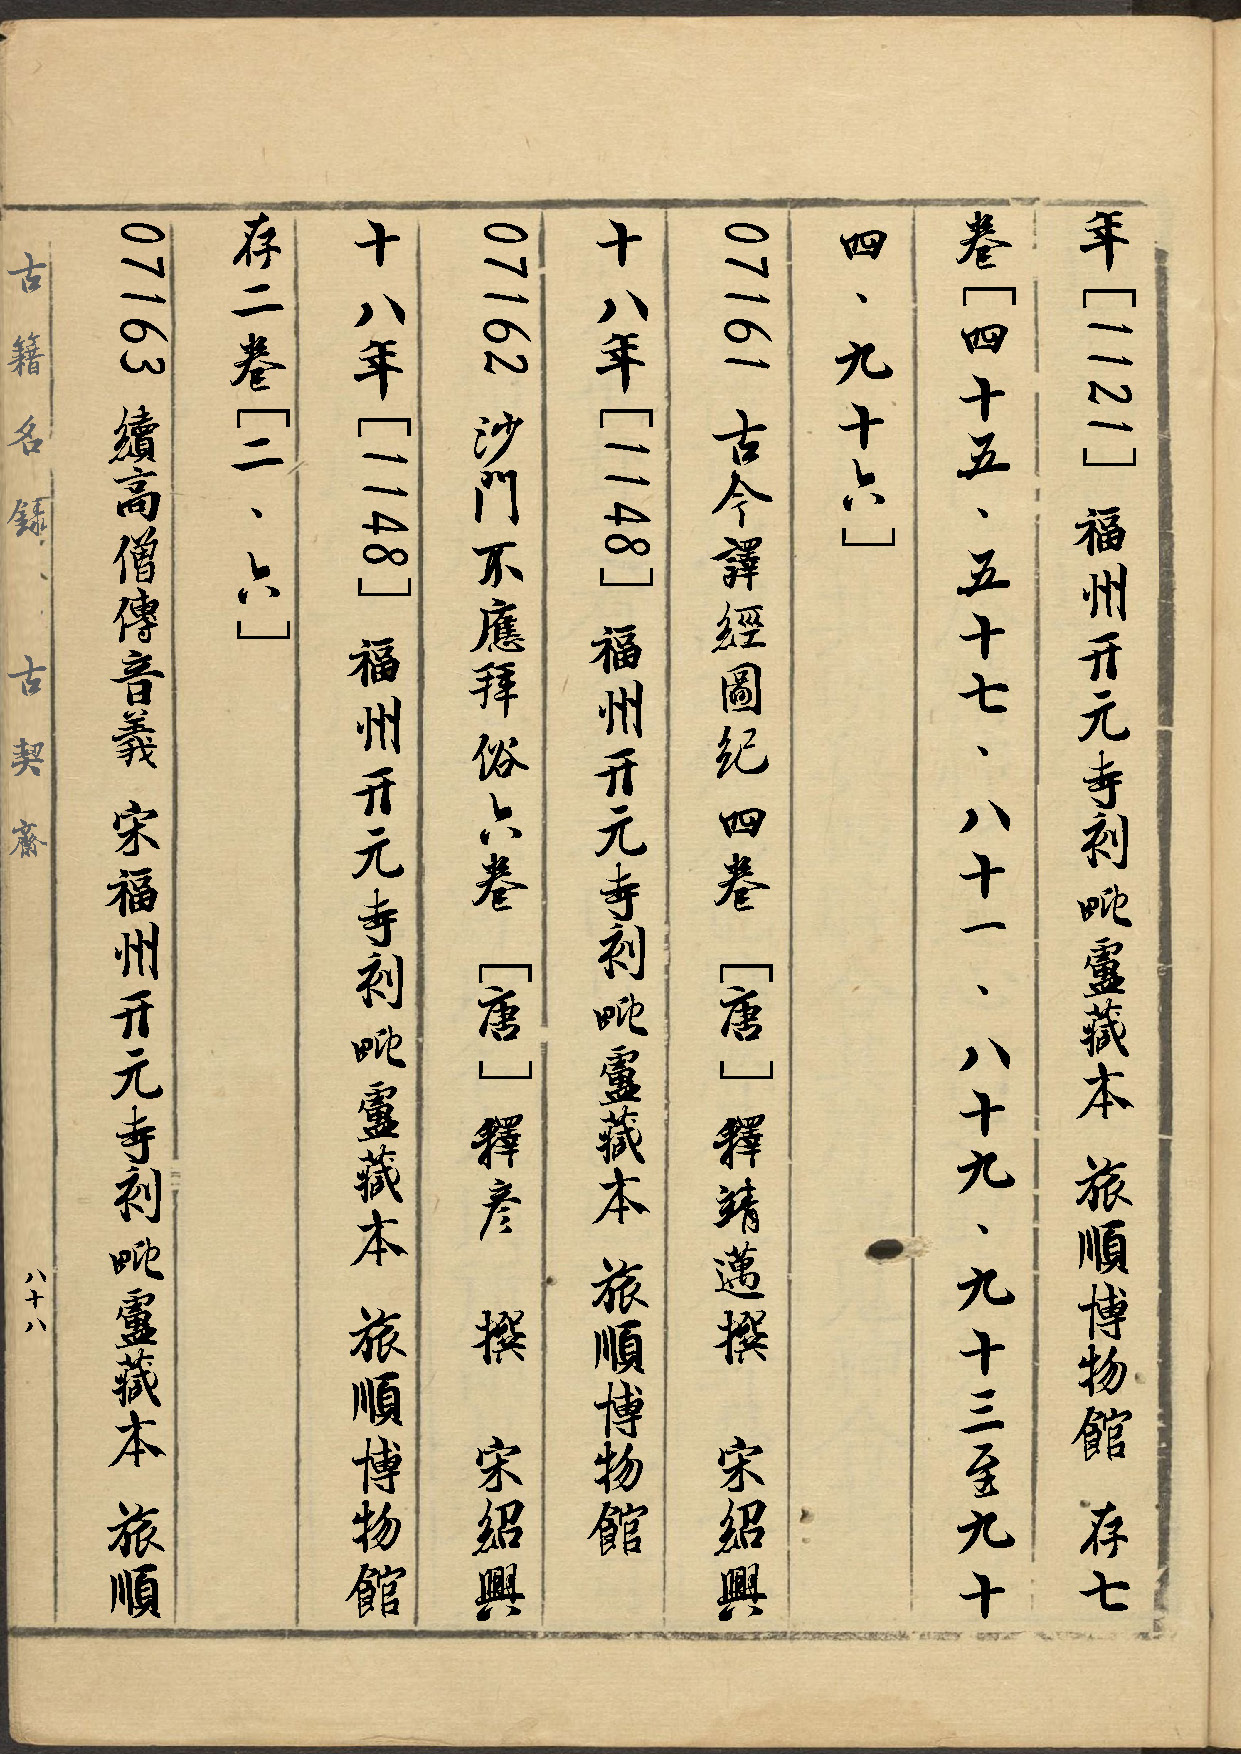 年［1121］ 福州开元寺刻毗盧藏本 旅順博物館 存七
卷［四十五、五十七、八十一、八十九、九十三至九十
四、九十六］
07161 古今譯經圖紀四卷 ［唐］ 釋靖邁撰 宋紹興
十八年［1148］ 福州开元寺刻毗盧藏本 旅順博物館
07162 沙門不應拜俗六卷 ［唐］ 釋彦 撰 宋紹興
十八年［1148］ 福州开元寺刻毗盧藏本 旅順博物館
存二卷［二、六］
07163 續高僧傳音義 宋福州开元寺刻毗盧藏本 旅順
古籍名録、、古契齋
八十八